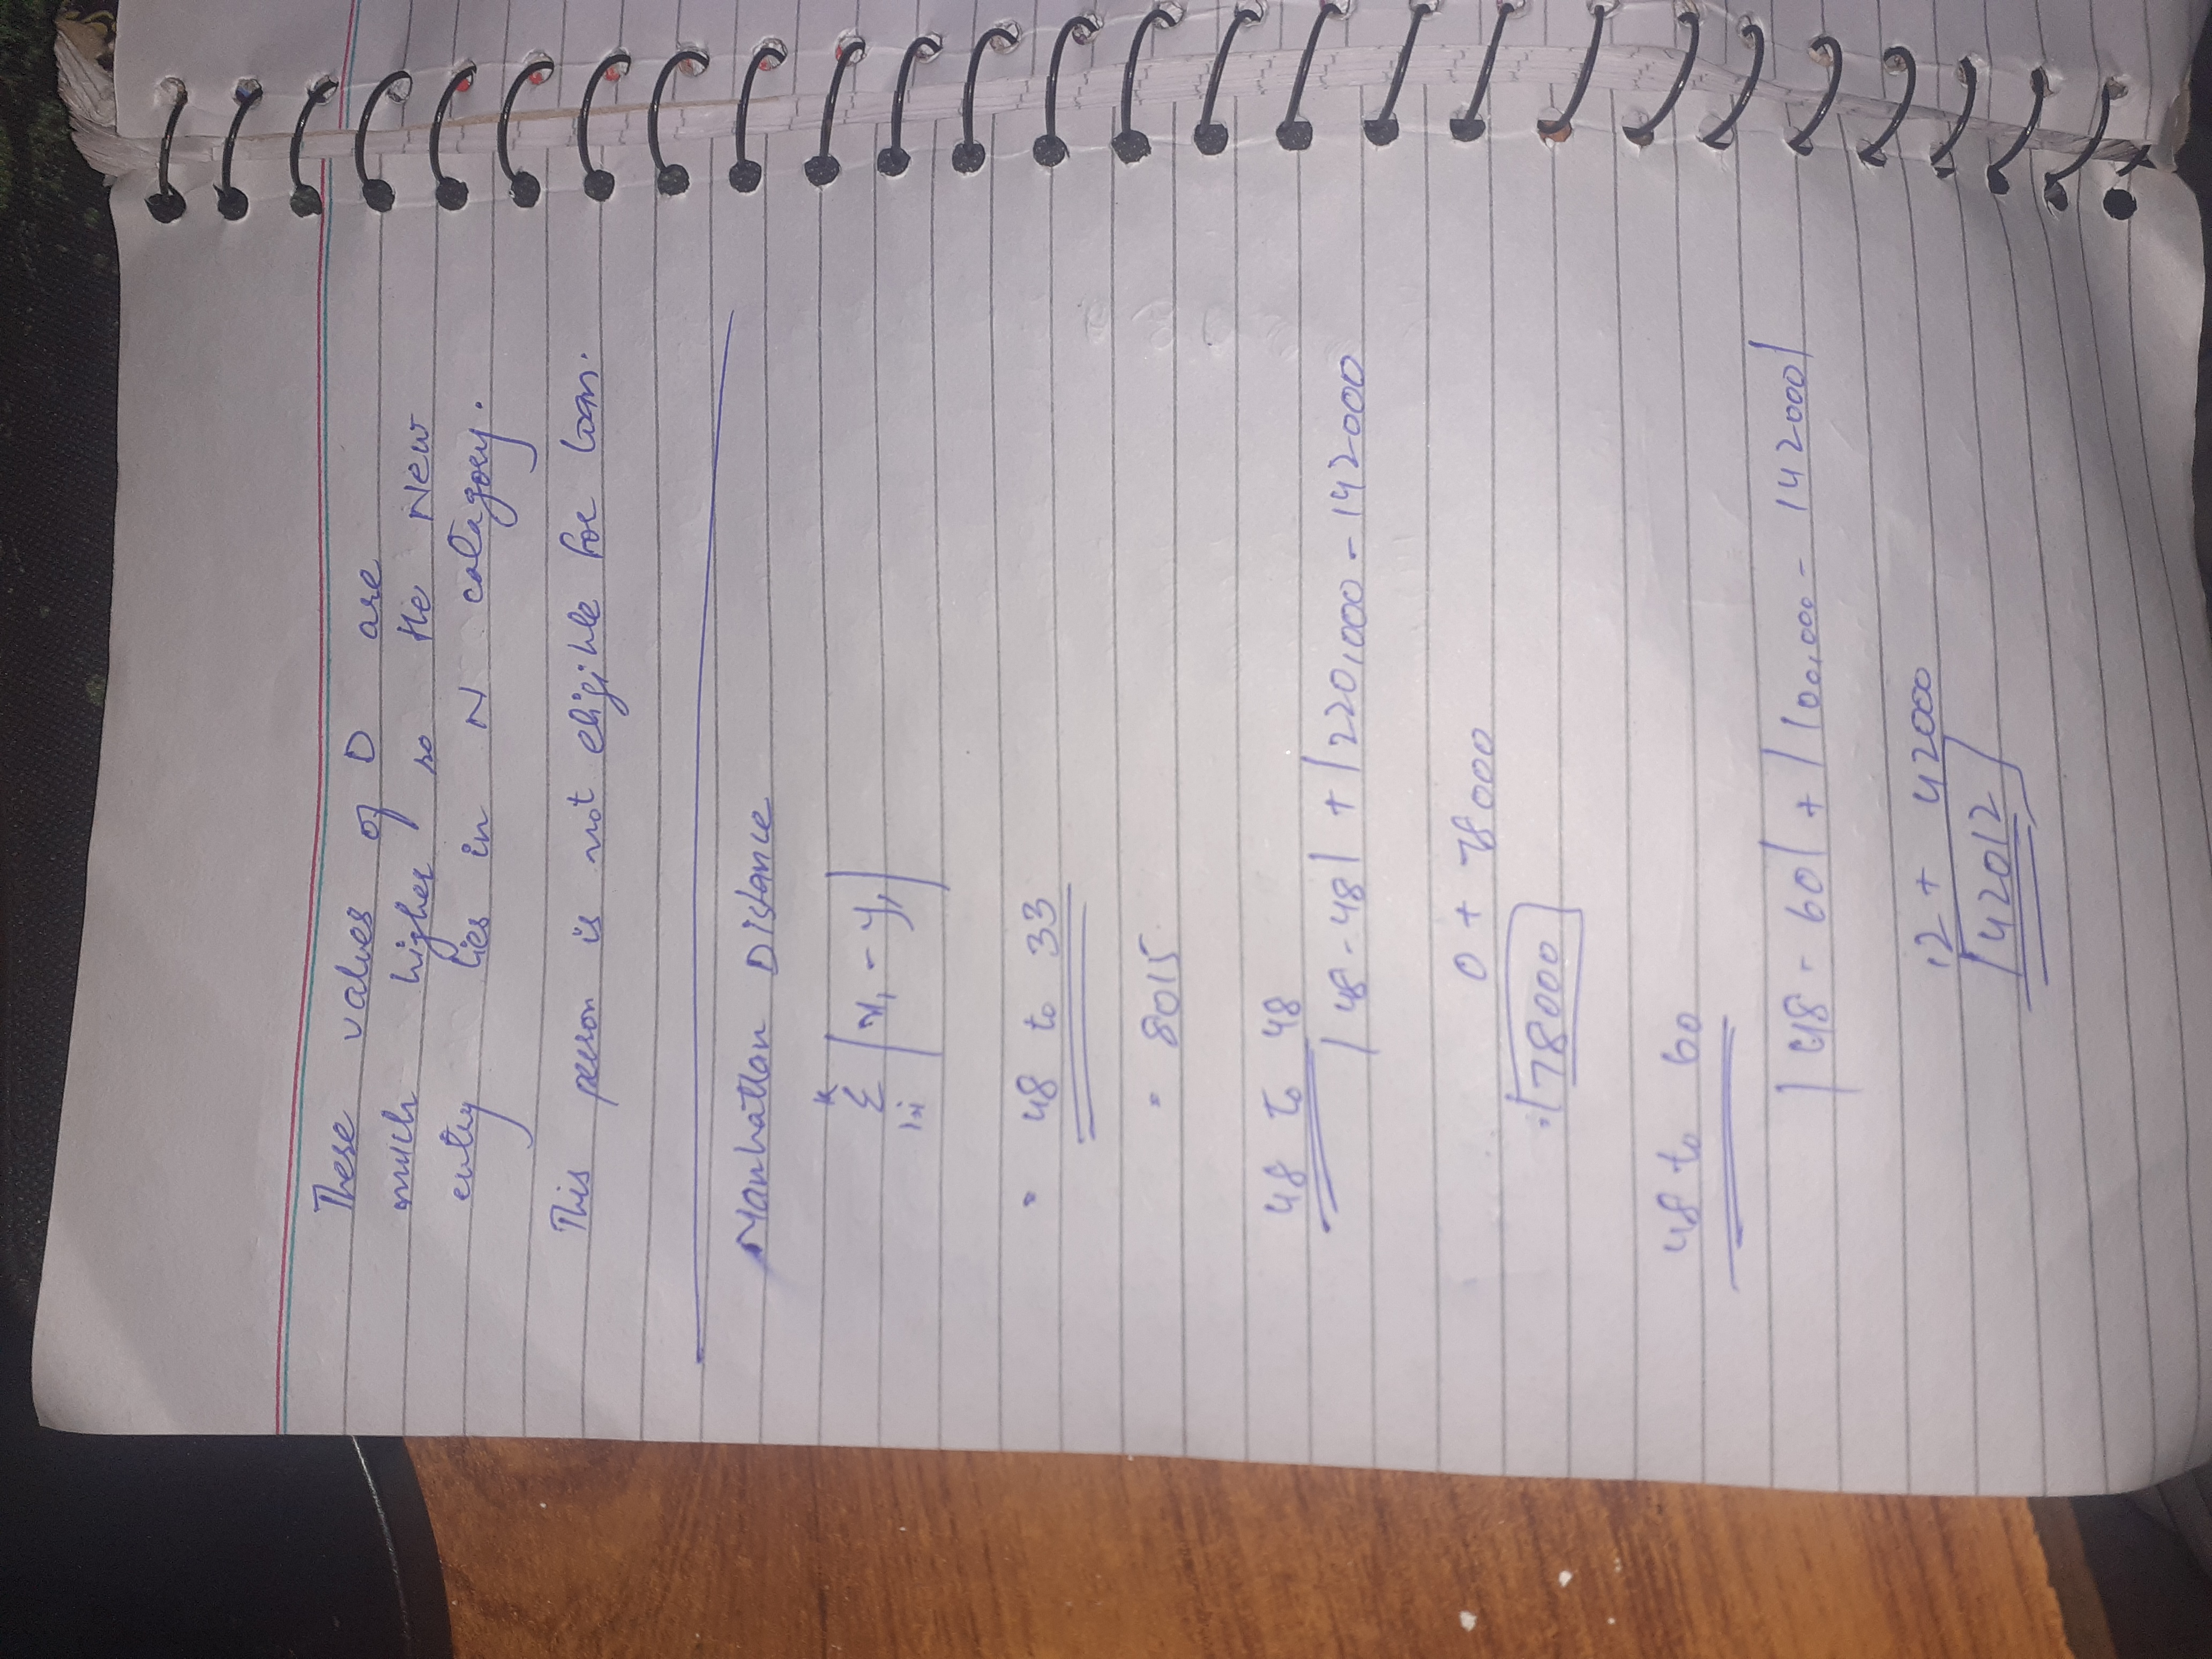 These values of D are
much higher so the New
entry lies in N catagory.
This person is not eligible for loan.
Manhattan Distance
K
Σ |x₁ - y₁|
1=i
= 48 to 33
= 8015
48 to 48
|48-48| + |220,000 - 142000
0 + 78000
= 78000
48 to 60
|48 - 60| + |100,000 - 142000|
12 + 42000
42012